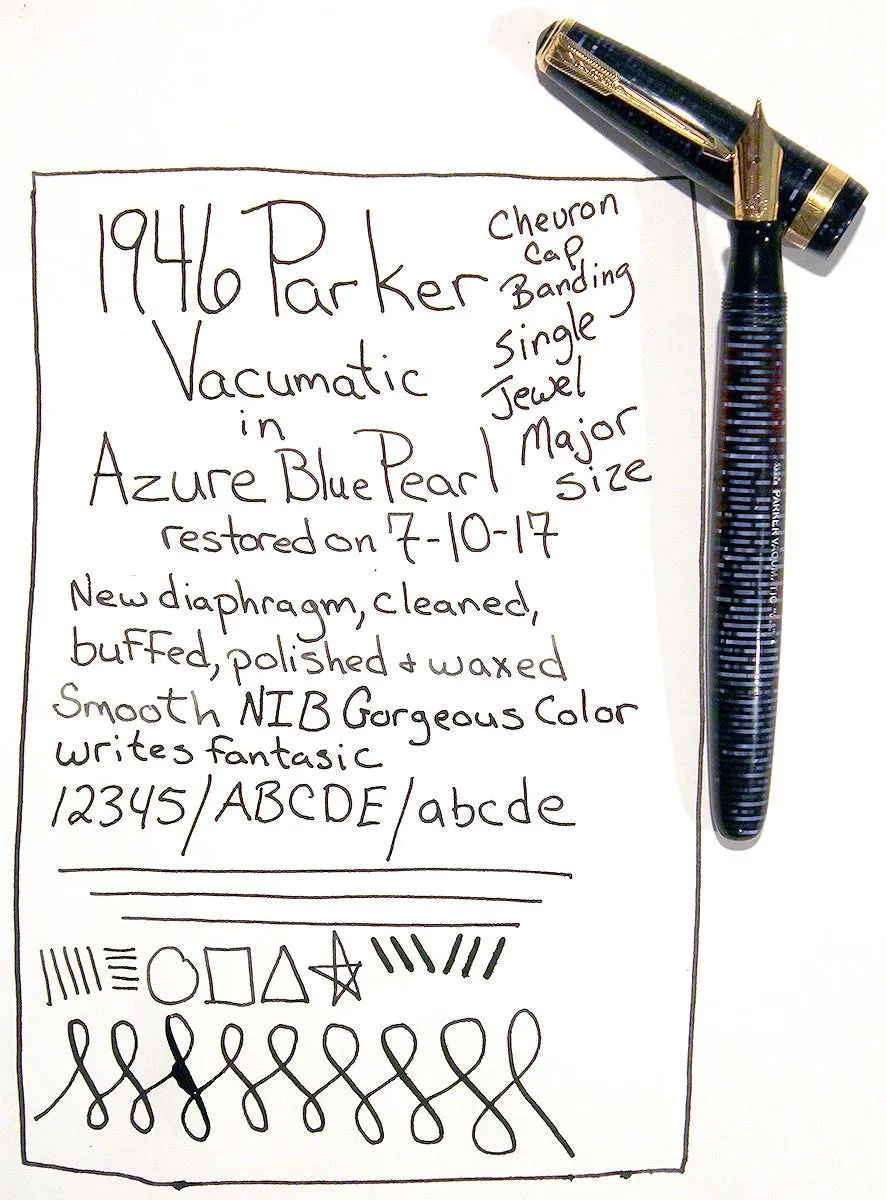 1946 Parker
Vacumatic
in
Azure Blue Pearl
Chevron
Cap
Banding
Single
Jewel
Major
size
restored on 7-10-17
New diaphragm, cleaned,
buffed, polished & waxed
Smooth NIB Gorgeous Color
writes fantasic
12345/ABCDE/abcde
PARKER VACUMATIC